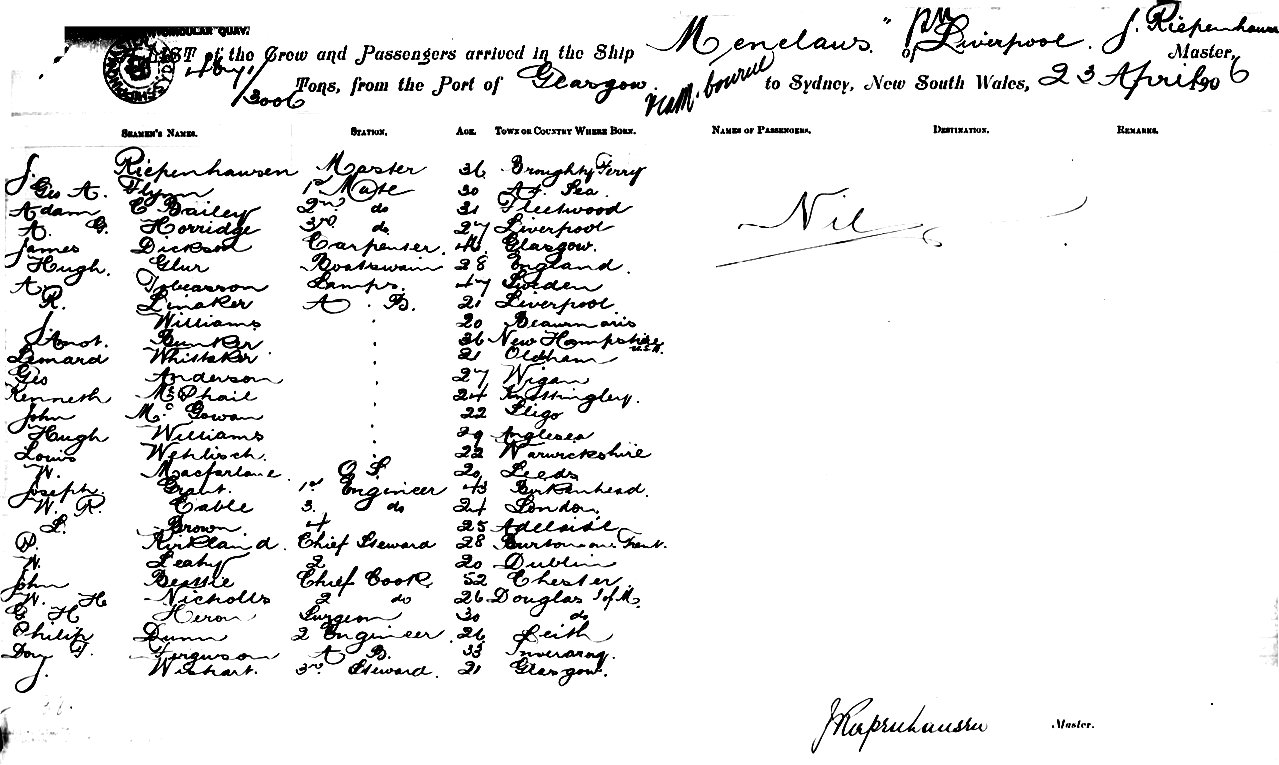 CIRCULAR QUAY.
LIST of the Crew and Passengers arrived in the Ship Menelaus." of Liverpool. J. Riepenhausen Master,
3006 Tons, from the Port of Glasgow via M.bourne to Sydney, New South Wales, 23 April 1906
SEAMEN'S NAMES. STATION. AGE. TOWN OR COUNTRY WHERE BORN. NAMES OF PASSENGERS. DESTINATION. REMARKS.
J. Riepenhausen Master 36 Broughty Ferry
Geo A. Flynn 1st Mate 30 At Sea. Nil
Adam C Bailey 2nd do 31 Fleetwood
A. G. Horridge 3rd do. 27 Liverpool
James Dickson Carpenter. 46 Glasgow.
Hugh. Boatswain 28 England.
A. Tobeasson Lamps. 47 Sweden
R. Linaker A. B. 21 Liverpool.
J. Williams 20 Beaumaris
Bunker 36 New Hampshire U.S.A.
Lenard Whittaker 21 Oldham
Geo Anderson 27 Wigan
Kenneth McPhail 24
John Mc Gowan 22 Sligo
Hugh Williams 29 Anglesea
Louis Wehlisch. 22 Warwickshire
W. Macfarlane. O.S. 20 Leeds
Joseph. Grant. 1st Engineer 43 Birkenhead.
W. R. Cable 3. do 24 London.
L. Brown 4 25 Adelaide
Kirkland. Chief Steward 28 Burton on Trent.
Leahy 2 20 Dublin
John Beattie Chief Cook. 52 Chester.
W. H. Nicholls 2 do 26 Douglas I of M.
G H Heron Surgeon 30 do
Philip Dunn 2 Engineer. 26 Leith
Don F. Ferguson A B. 33 Inveraray.
J. Wishart. 3rd Steward. 21 Glasgow.
J Riepenhausen Master.